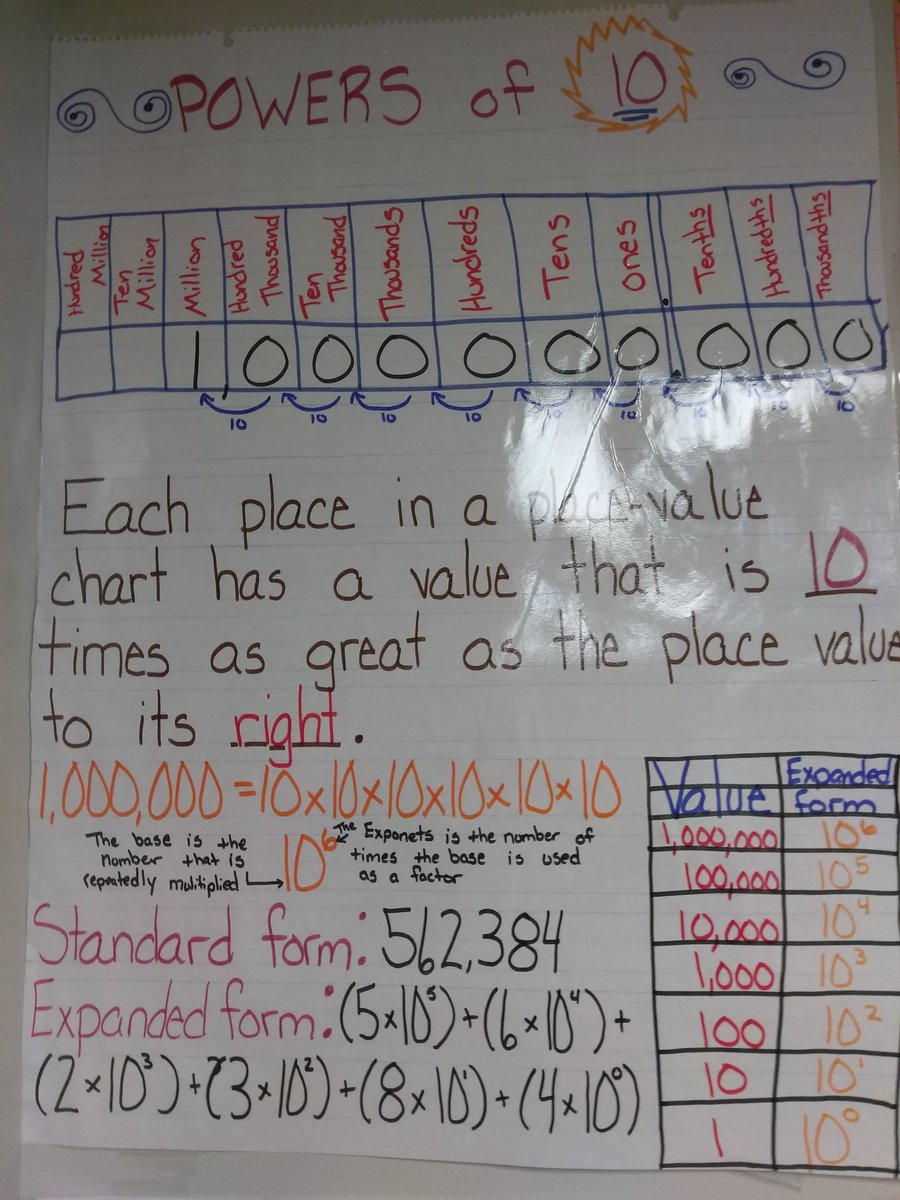 POWERS of 10
Hundred Million
Ten Million
Million
Hundred Thousand
Ten Thousand
Thousands
Hundreds
Tens
ones
.
Tenths
Hundredths
Thousandths
1 0 0 0 0 0 0 . 0 0 0
10 10 10 10 10 10 10 10 10
Each place in a place-value
chart has a value that is 10
times as great as the place value
to its right.
1,000,000 = 10 x 10 x 10 x 10 x 10 x 10
The base is the
number that is
repeatedly mulitiplied
10⁶
The Exponets is the number of
times the base is used
as a factor
Standard form: 562,384
Expanded form: (5 x 10⁵) + (6 x 10⁴) +
(2 x 10³) + (3 x 10²) + (8 x 10¹) + (4 x 10⁰)
Value Expanded form
1,000,000 10⁶
100,000 10⁵
10,000 10⁴
1,000 10³
100 10²
10 10¹
1 10⁰